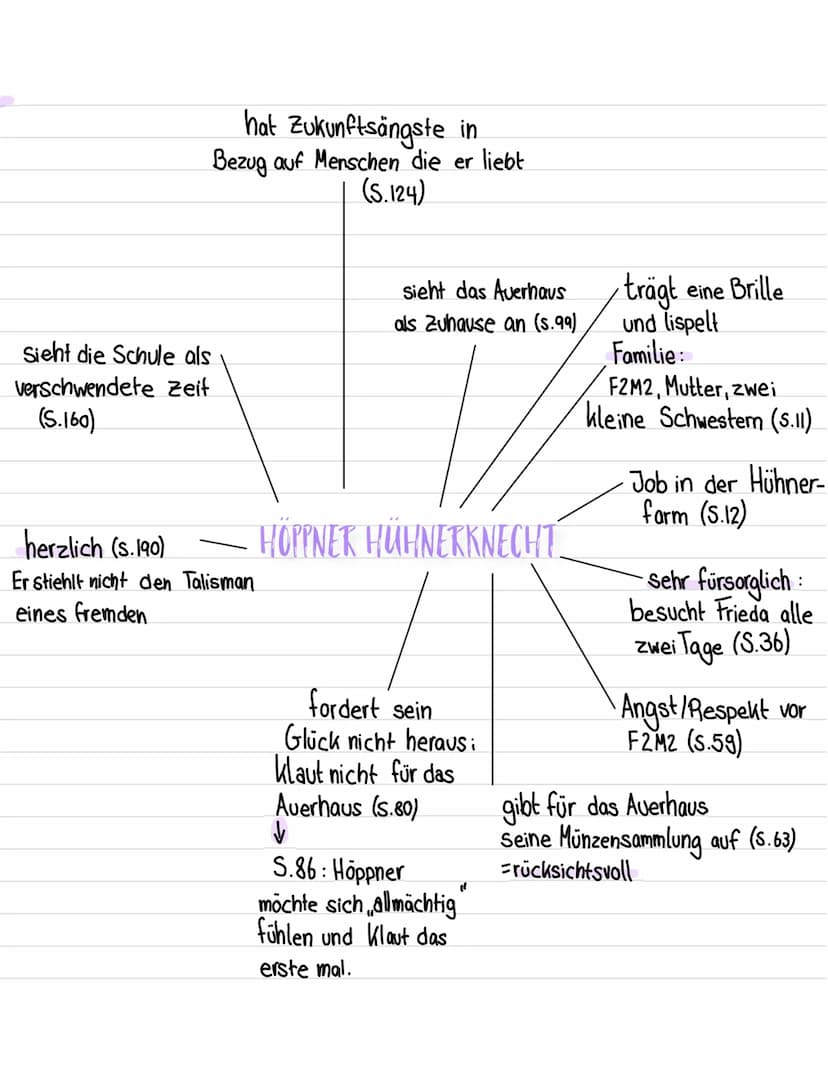 hat Zukunftsängste in
Bezug auf Menschen die er liebt
(S.124)
sieht das Auerhaus
als Zuhause an (S.99)
trägt eine Brille
und lispelt
Familie:
F2M2, Mutter, zwei
kleine Schwestern (S.11)
sieht die Schule als
verschwendete Zeit
(S.160)
Job in der Hühner-
farm (S.12)
HÖPPNER HÜHNERKNECHT
herzlich (S.190)
Er stiehlt nicht den Talisman
eines fremden
sehr fürsorglich:
besucht Frieda alle
zwei Tage (S.36)
Angst/Respekt vor
F2M2 (S.59)
fordert sein
Glück nicht heraus;
klaut nicht für das
Auerhaus (S.80)
↓
S.86: Höppner
möchte sich „allmächtig"
fühlen und klaut das
erste mal.
gibt für das Auerhaus
seine Münzensammlung auf (S.63)
=rücksichtsvoll